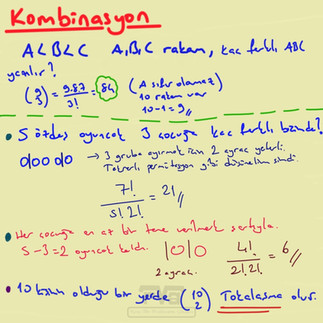 Kombinasyon
A<B<C A,B,C rakam, kaç farklı ABC
yazılır?
(9 3) = 9.8.7 / 3! = 84 (A sıfır olamaz
10 rakam var
10-1=9 //
• 5 özdeş oyuncak 3 çocuğa kaç farklı biçimde?
0|00|00 → 3 gruba ayırmak için 2 ayraç yeterli.
Tekrarlı permütasyon gibi düşünelim şimdi.
7! / 5!.2! = 21 //
• Her çocuğa en az bir tane verilmek şartıyla.
5-3=2 oyuncak kaldı. |0|0 4! / 2!.2! = 6 //
2 ayraç.
• 10 kişinin olduğu bir yerde (10 2) Tokalaşma olur.